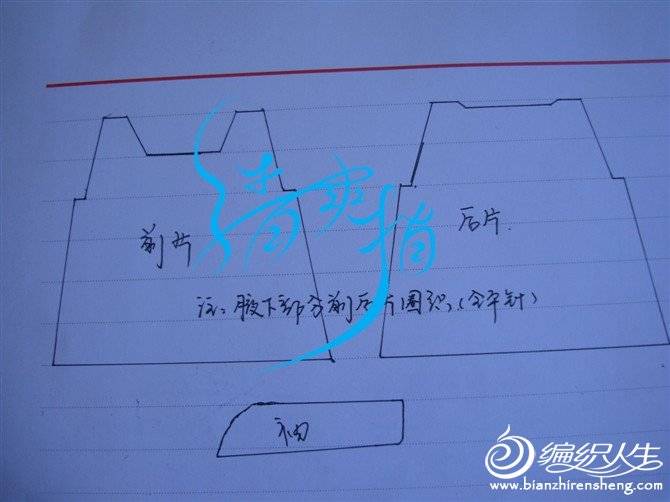 前片
后片.
注:腋下部分前后片圈织,(全平针)
袖
清爽指
编织人生
www.bianzhirensheng.com